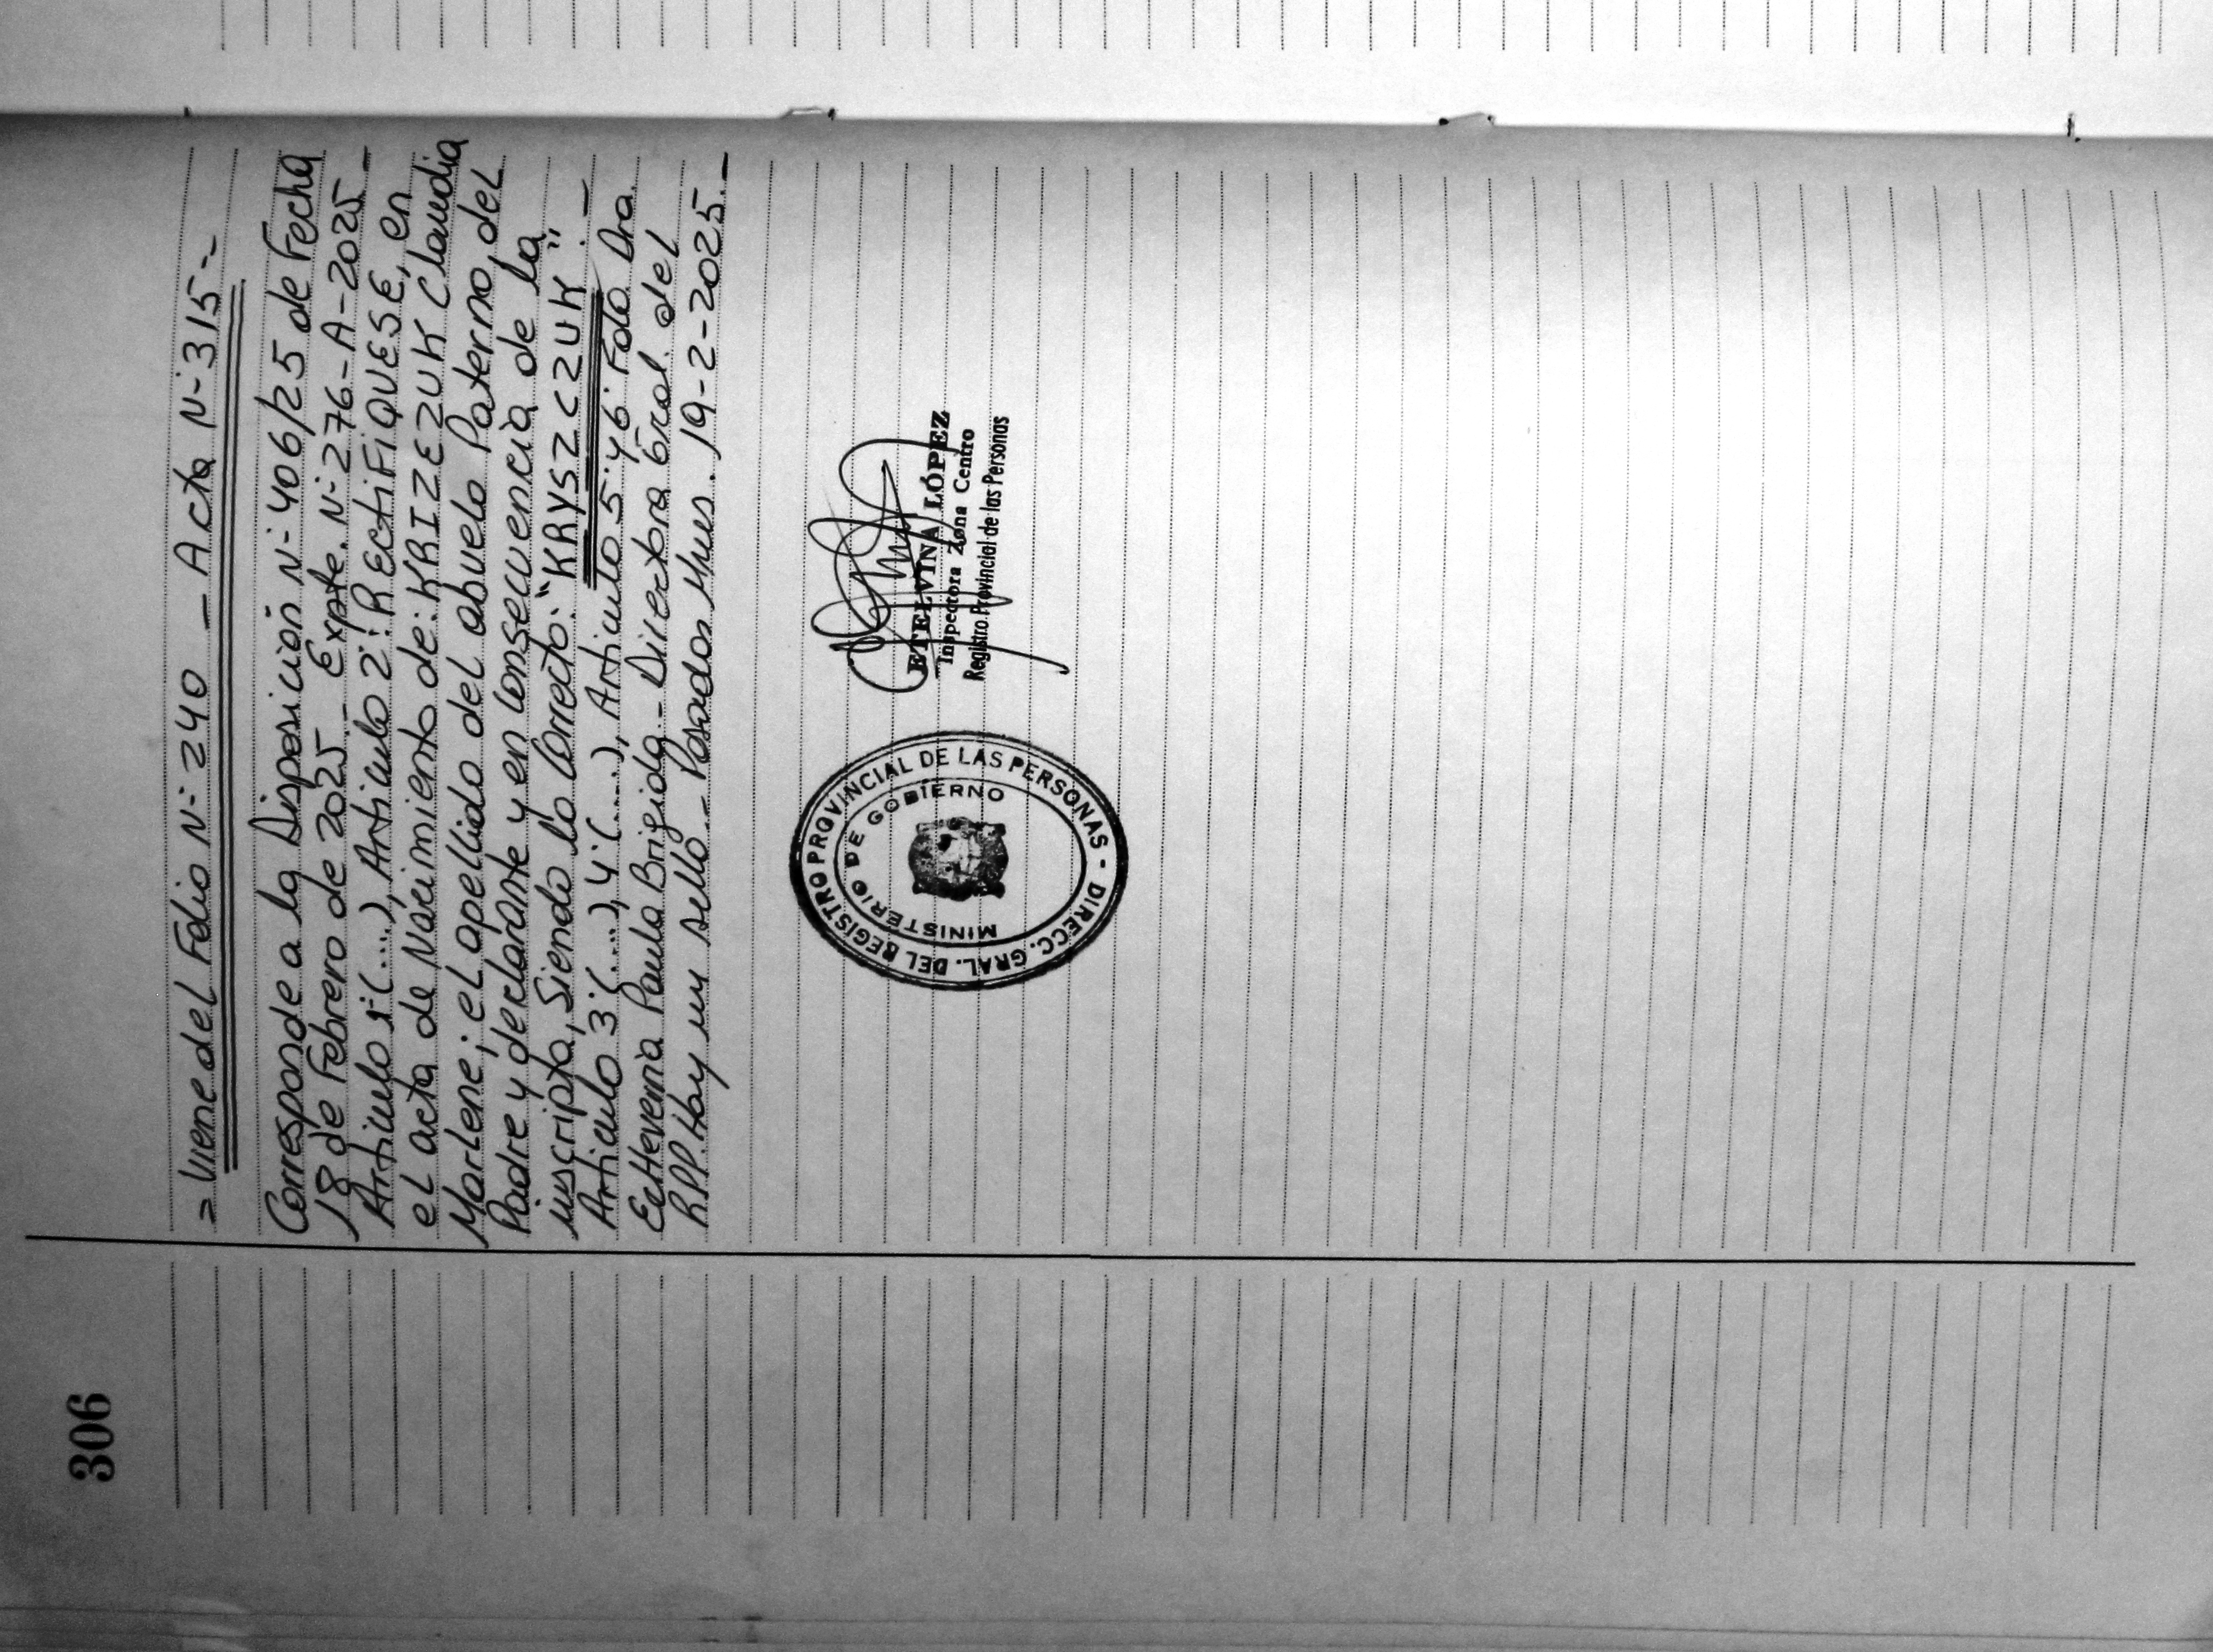 306
= Viene del Folio N- 240 - Acta N- 315 --
Corresponde a la Disposición N- 406/25 de Fecha
18 de Febrero de 2025 - Expte. N- 276-A-2025 -
Artículo 1- (...), Artículo 2-: RECtiFiQUESE, en
el acta de Nacimiento de: KRIZEZUK Claudia
Marlene; el apellido del abuelo Paterno, del
Padre y declarante y en consecuencia de la
inscripta, Siendo lo Correcto: "KRYSZCZUK". -
Artículo 3- (....), 4- (....), Artículo 5- y 6- Fdo. Dra.
Echeverria Paula Brigida - Directora Gral. del
R.P.P. Hay un sello - Posadas Mnes. 19-2-2025. -
ETELVINA LÓPEZ
Inspectora Zona Centro
Registro Provincial de las Personas
DIRECC. GRAL. DEL REGISTRO PROVINCIAL DE LAS PERSONAS -
MINISTERIO DE GOBIERNO